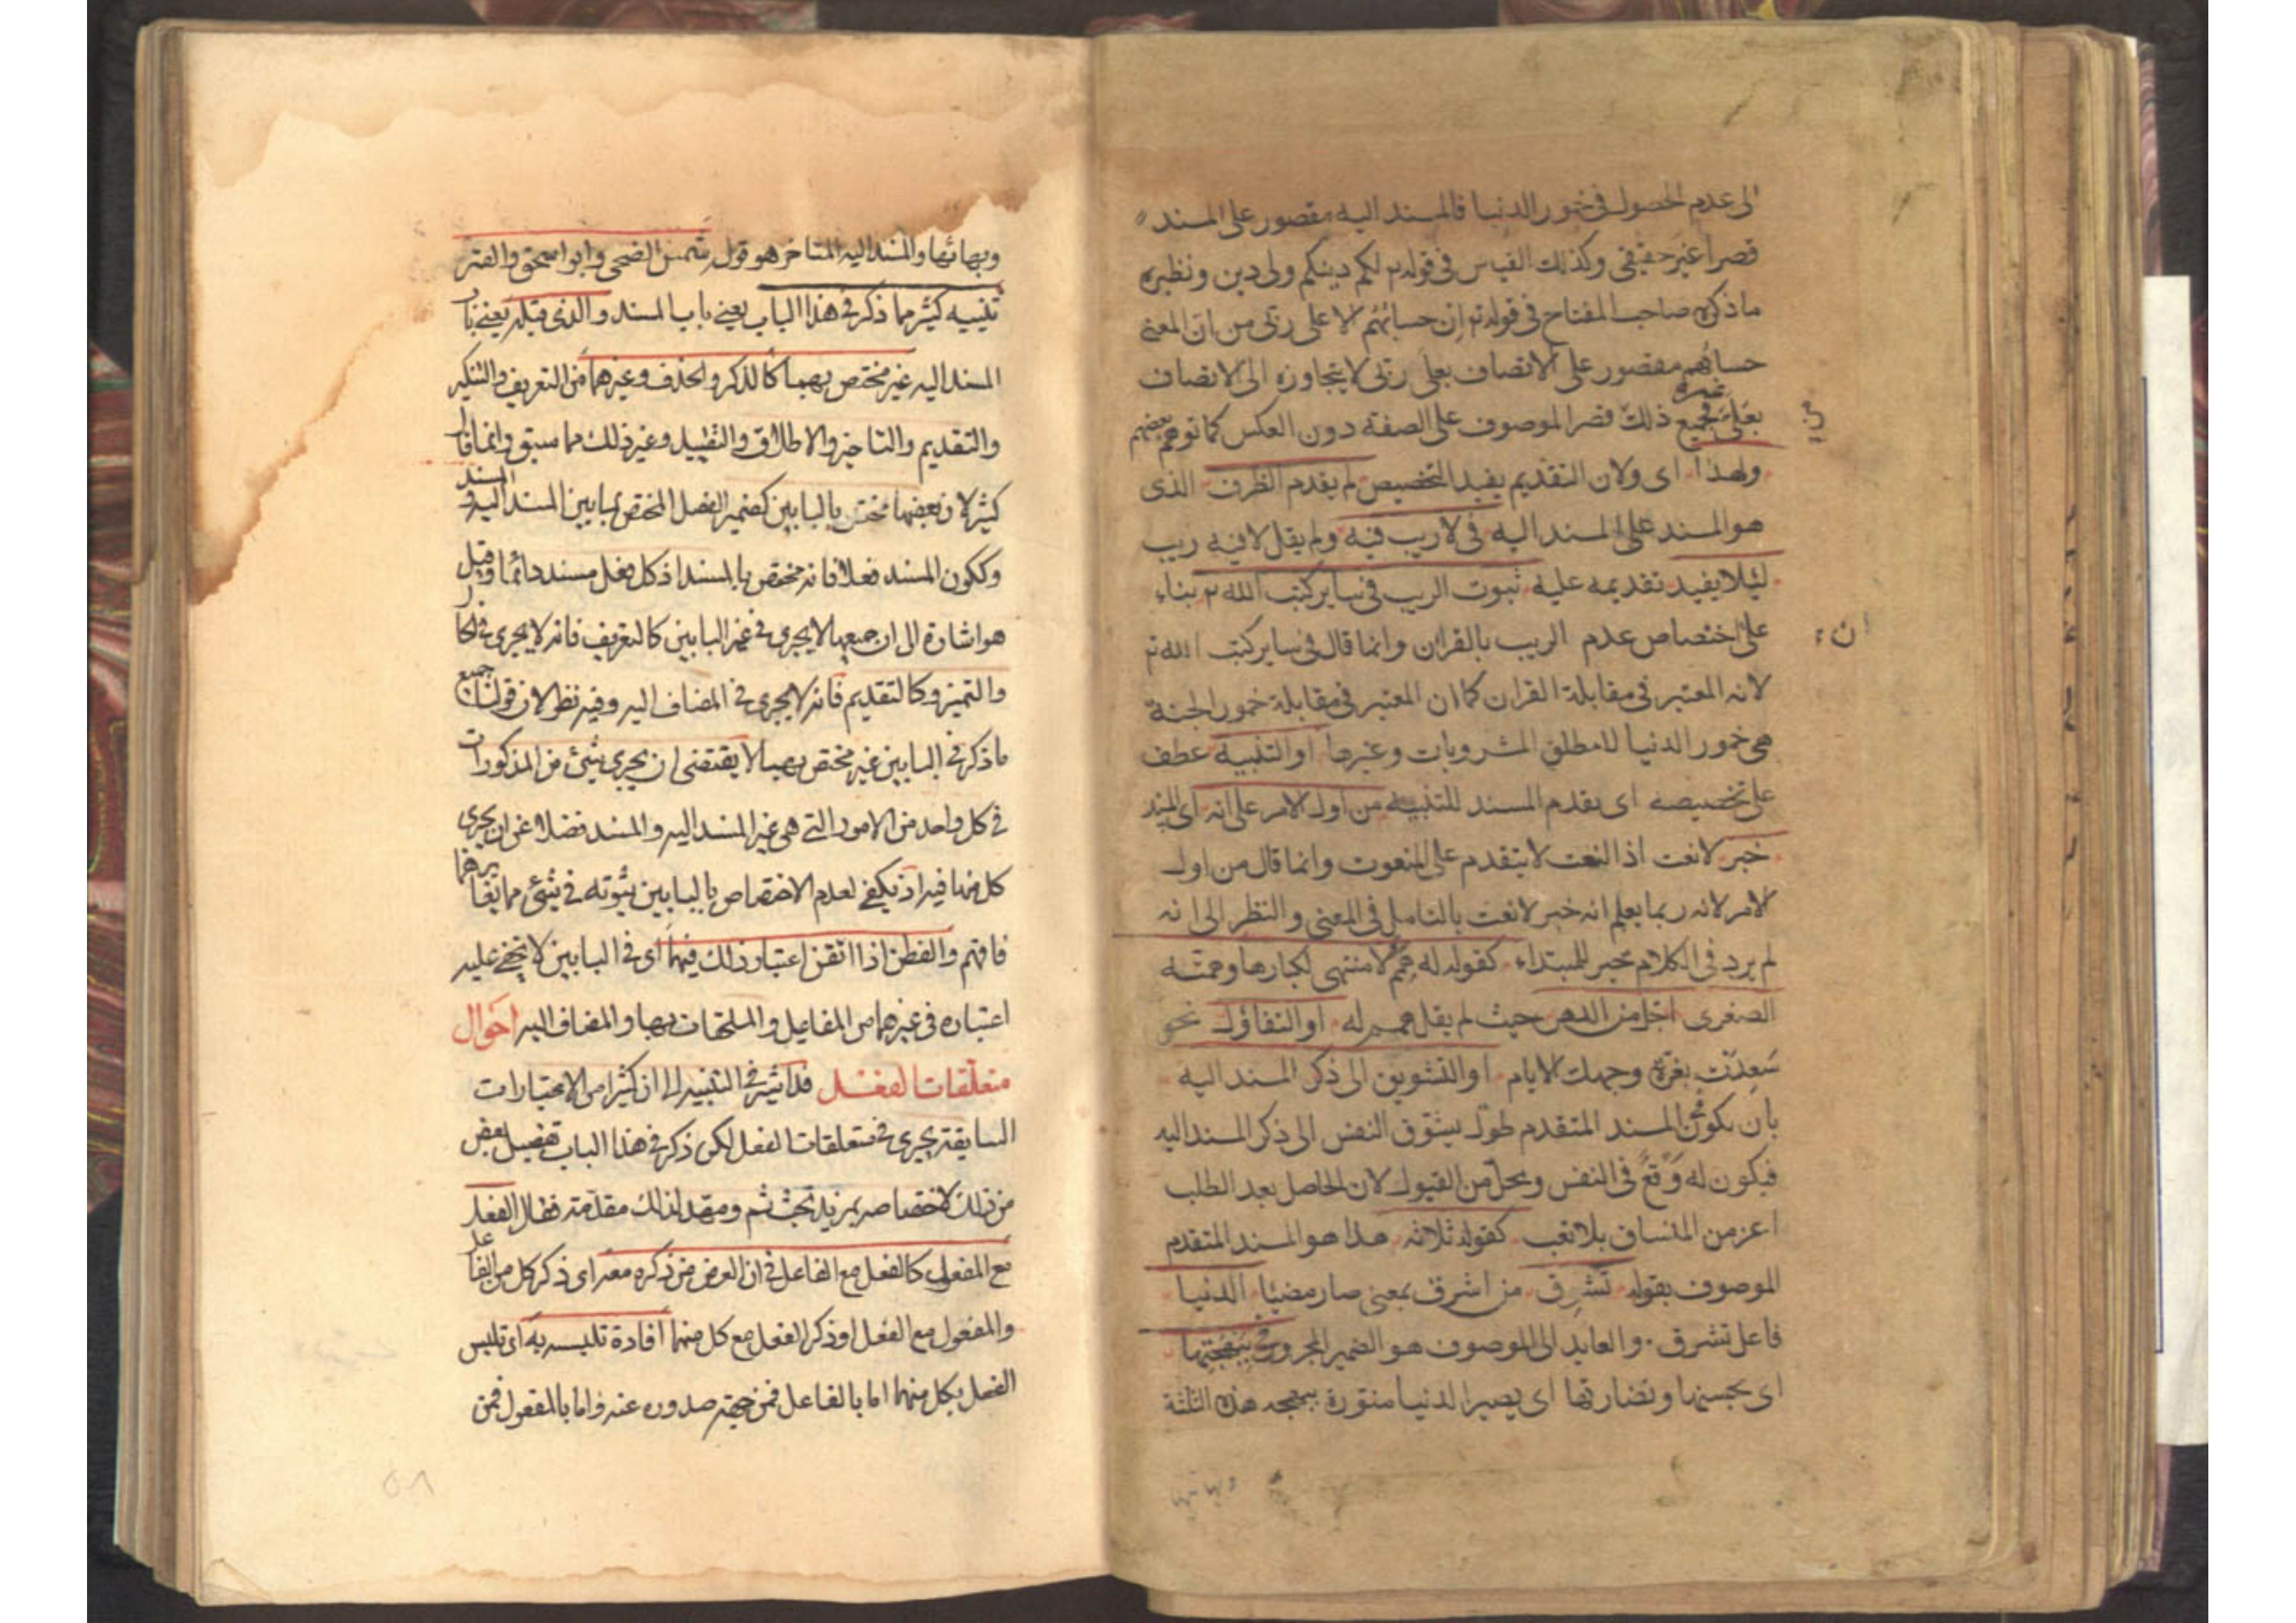 الى عدم الحصول فى خمور الدنيا فالمسند اليه مقصور على المسند
قصرا غير حقيقى وكذلك القياس فى قوله تع لكم دينكم ولى دين ونظيره
ما ذكره صاحب المفتاح فى قوله تع ان حسابهم الا على ربى من ان المعنى
حسابهم مقصور على الاتصاف بعلى ربى لا يتجاوزه الى الاتصاف
بعلى غيره فجميع ذلك قصر الموصوف على الصفة دون العكس كما توهمه بعضهم
ولهذا اى ولان التقديم يفيد التخصيص لم يقدم الظرف الذى
هو المسند على المسند اليه فى لا ريب فيه ولم يقل لا فيه ريب
لئلا يفيد تقديمه عليه ثبوت الريب فى ساير كتب الله تع بناء
على اختصاص عدم الريب بالقران وانما قال فى ساير كتب الله تع
لانه المعتبر فى مقابلة القران كما ان المعتبر فى مقابلة خمور الجنة
هى خمور الدنيا لا مطلق المشروبات وغيرها او التنبيه عطف
على تخصيصه اى تقدم المسند للتنبيه من اول الامر على انه اى المسند
خبر لا نعت اذ النعت لا يتقدم على المنعوت وانما قال من اول
الامر لانه ربما يعلم انه خبر لا نعت بالتامل فى المعنى والنظر الى انه
لم يرد فى الكلام خبر للمبتداء كقوله له همم لا منتهى لكبارها وهمته
الصغرى اجل من الدهر حيث لم يقل همم له او التفاؤل نحو
سعدت بغرة وجهك الايام او التشويق الى ذكر المسند اليه
بان يكون فى المسند المتقدم طول يشوق النفس الى ذكر المسند اليه
فيكون له وقع فى النفس ومحل من القبول لان الحاصل بعد الطلب
اعز من المنساق بلا تعب كقوله ثلاثة هذا هو المسند المتقدم
الموصوف بقوله تشرق من اشرق بمعنى صار مضيئا الدنيا
فاعل تشرق والعايد الى الموصوف هو الضمير المجرور فى ببهجتها
اى بحسنها ونضارتها اى يصير الدنيا منورة ببهجة هذه الثلثة
وبهائها
وبهائها والمسند اليه المتاخر هو قوله شمس الضحى وابو اسحق والقمر
تنبيه كثير مما ذكر فى هذا الباب يعنى باب المسند والذى قبله يعنى باب
المسند اليه غير مختص بهما كالذكر والحذف وغيرهما من التعريف والتنكير
والتقديم والتاخير والاطلاق والتقييد وغير ذلك مما سبق وانما قال
كثير لان بعضها مختص بالبابين كضمير الفصل المختص بما بين المسند اليه والمسند
وككون المسند فعلا فانه مختص بالمسند اذ كل فعل مسند دائما وقيل
هو اشارة الى ان جميعها لا يجرى فى غير البابين كالتعريف فانه لا يجرى فى الحال
والتميز وكالتقديم فانه لا يجرى فى المضاف اليه وفيه نظر لان قولنا جميع
ما ذكر فى البابين غير مختص بهما لا يقتضى ان يجرى شئ من المذكورات
فى كل واحد من الامور التى هى غير المسند اليه والمسند فضلا عن ان يجرى
كل منها فيه اذ يكفى لعدم الاختصاص بالبابين ثبوته فى شئ مما يغايرهما
فافهم والفطن اذا اتقن اعتبار ذلك فيهما اى فى البابين لا يخفى عليه
اعتباره فى غيرهما من المفاعيل والملحقات بها والمضاف اليه احوال
متعلقات الفعل قد اشير فى التنبيه الى ان كثيرا من الاعتبارات
السابقة يجرى فى متعلقات الفعل لكن ذكر فى هذا الباب تفصيل بعض
من ذلك لاختصاصه بمزيد بحث ثم ومهد لذلك مقدمة فقال الفعل
مع المفعول كالفعل مع الفاعل فى ان الغرض من ذكره معه اى ذكر كل من الفاعل
والمفعول مع الفعل او ذكر الفعل مع كل منهما افادة تلبسه به اى تلبس
الفعل بكل منهما اما بالفاعل فمن جهة صدوره عنه واما بالمفعول فمن